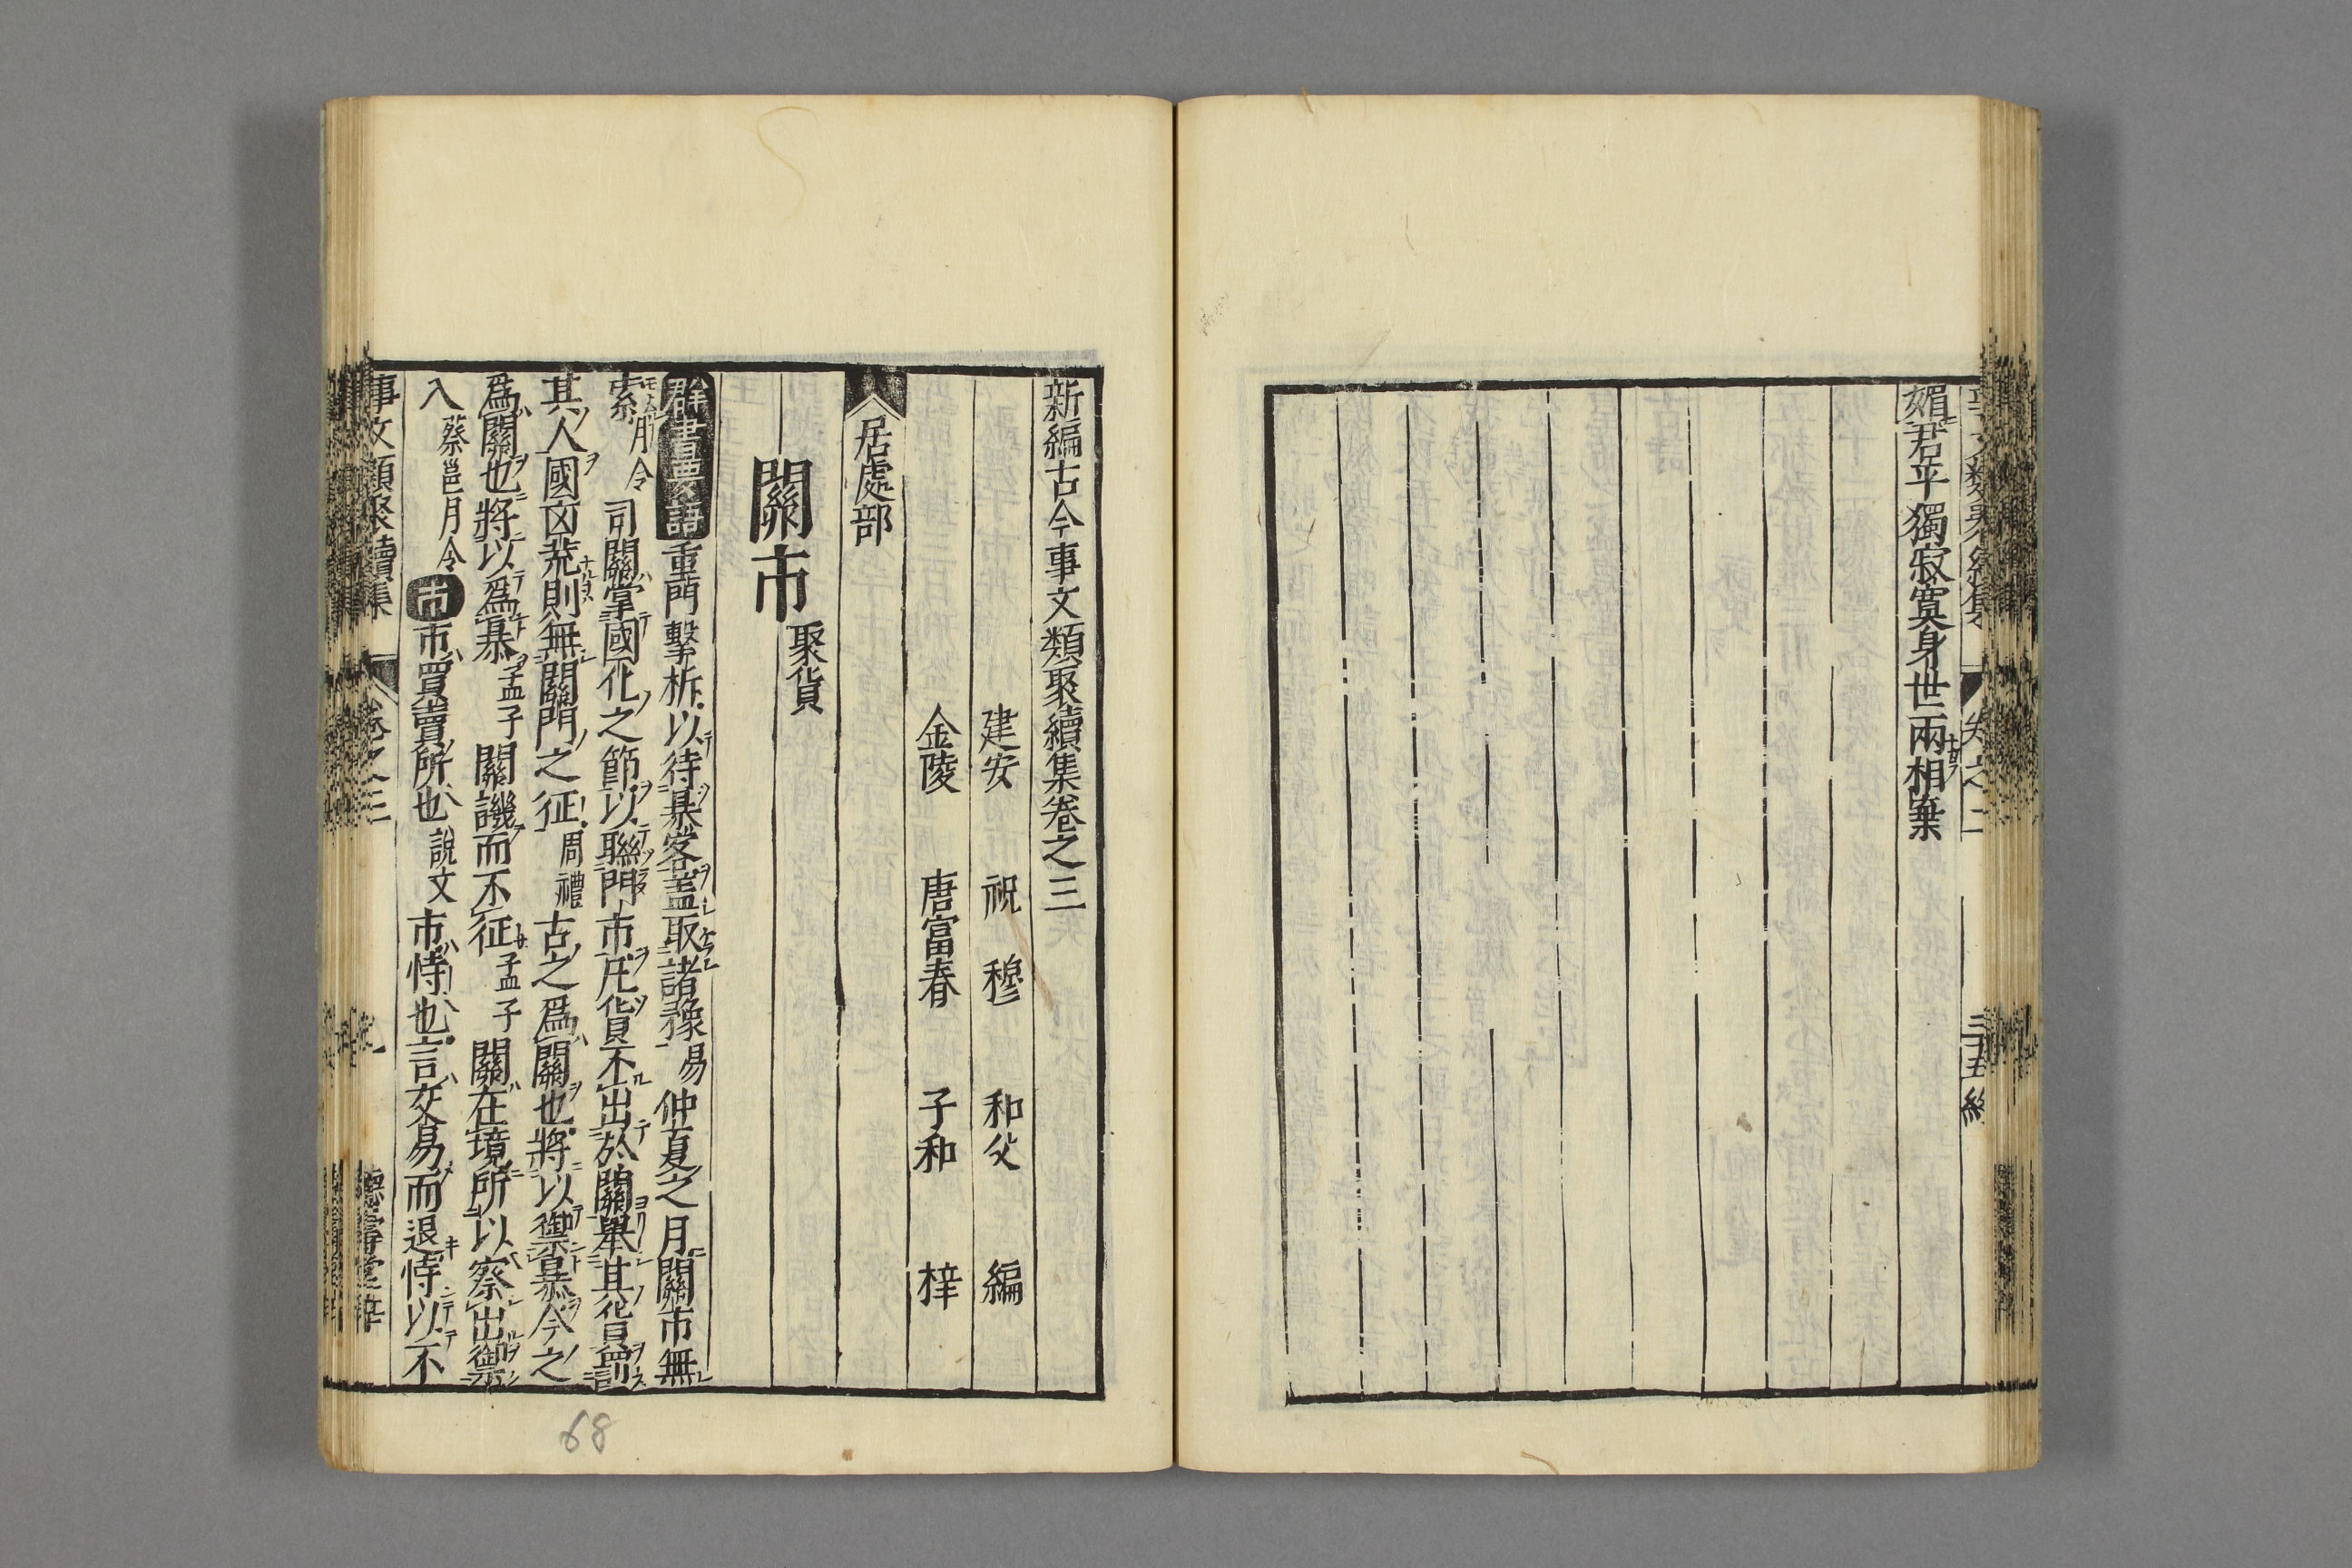 媚君平獨寂寞身世兩相棄
新編古今事文類聚續集卷之三
建安 祝 穆 和父 編
金陵 唐富春 子和 梓
居處部
關市 聚貨
群書要語 重門擊柝以待暴客盖取諸豫 易 仲夏之月關市無
索 月令 司關掌國化之節以聯門市凡貨不出於關舉其貨罰
其人國凶荒則無關門之征 周禮 古之爲關也將以禦暴今之
爲關也將以爲暴 孟子 關譏而不征 孟子 關在境所以察出禦
入 蔡邕月令 市 市買賣所也 說文 市恃也言交易而退恃以不
事文類聚續集 卷之三 德壽堂梓
68